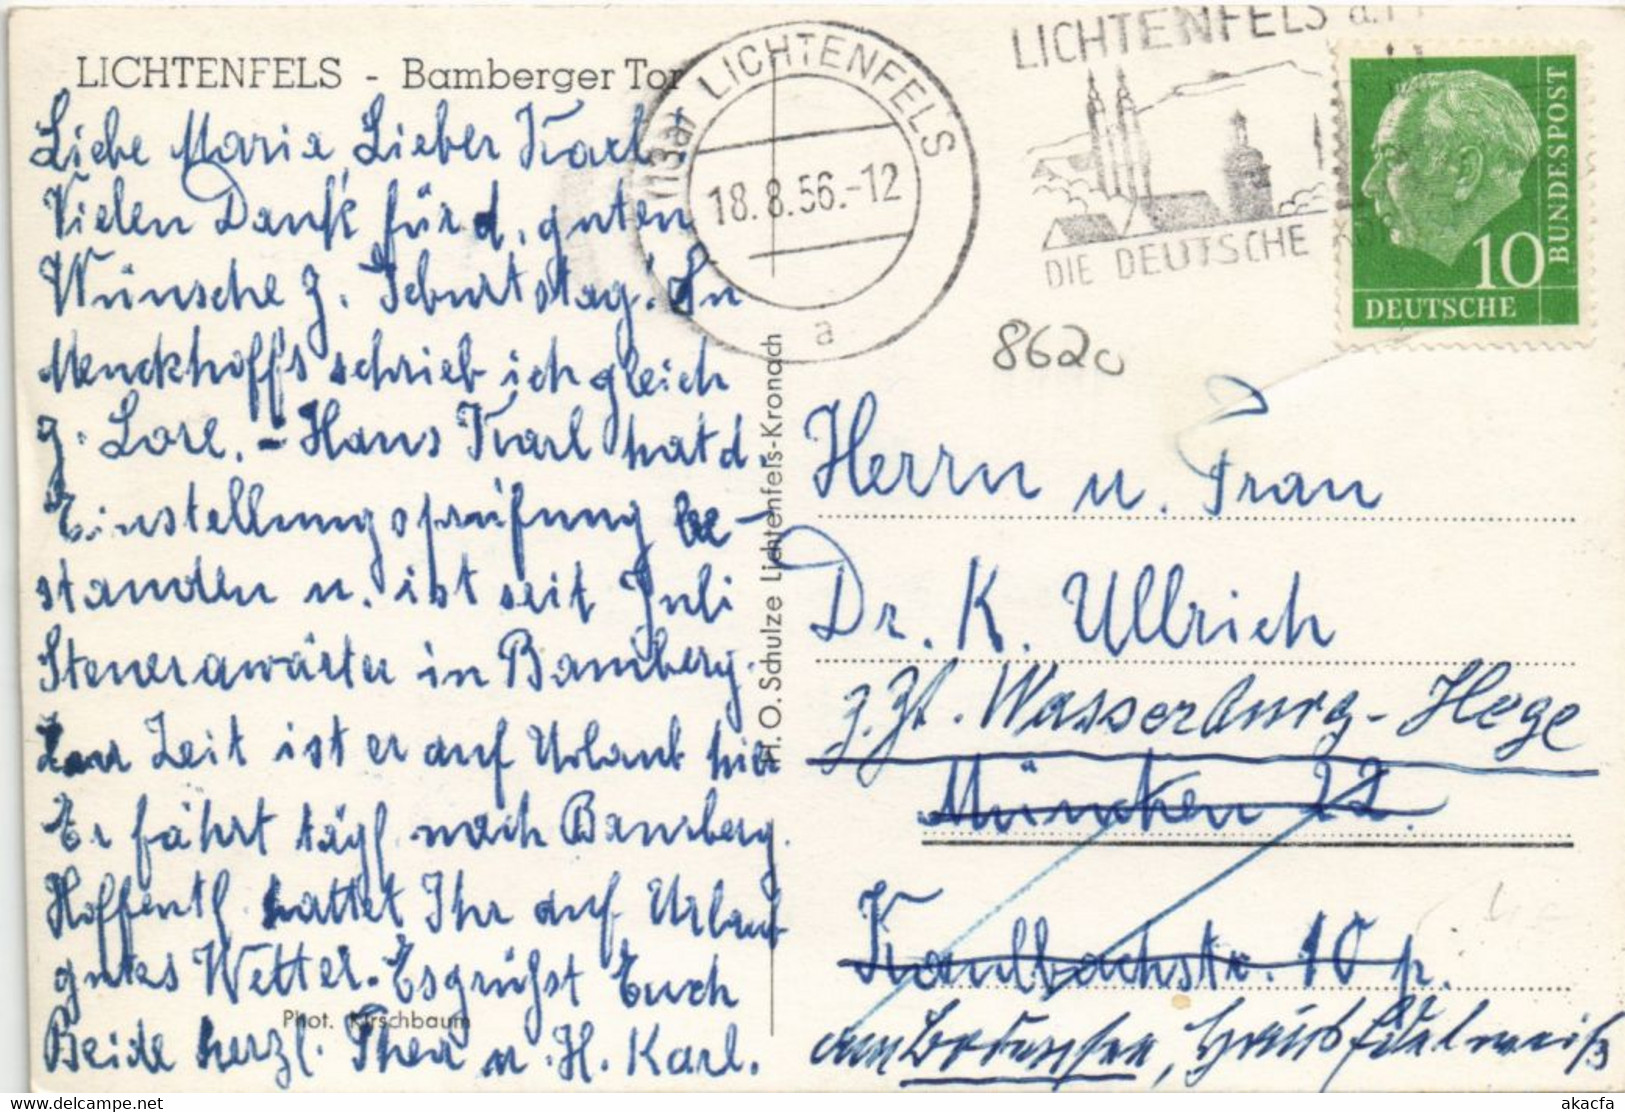 LICHTENFELS - Bamberger Tor
Liebe Maria, Lieber Karl,
Vielen Dank für d. guten
Wünsche z. Geburtstag! An
Menckhoff's schrieb ich gleich
z. Lore. - Hans Karl hat d.
Einstellungsprüfung be-
standen u. ist seit Juli
Steueranwärter in Bamberg.
Zur Zeit ist er auf Urlaub hier
Er fährt tägl. nach Bamberg.
Hoffentl. hattet Ihr auf Urlaub
gutes Wetter. Es grüßt Euch
Beide herzl. Thea u. H. Karl.
Phot. Kirschbaum
H. O. Schulze Lichtenfels-Kronach
(13a) LICHTENFELS
18.8.56.-12
a
LICHTENFELS a.
DIE DEUTSCHE
10
BUNDESPOST
DEUTSCHE
8620
Herrn u. Frau
Dr. K. Ullrich
z. Zt. Wasserburg-Hege
München 22
Kaulbachstr. 10 p.
am Bodensee, Haus Edelweiß
akacfa